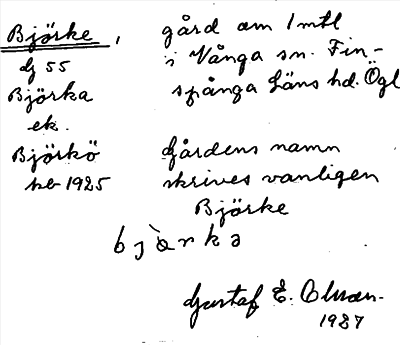 Björke, gård om 1 mtl
Gj 55 i Vånga sn. Fin-
Björka spånga Läns hd. Ögl
ek.
Björkö Gårdens namn
skrives vanligen
1925
Björke
Gustaf E.
1927